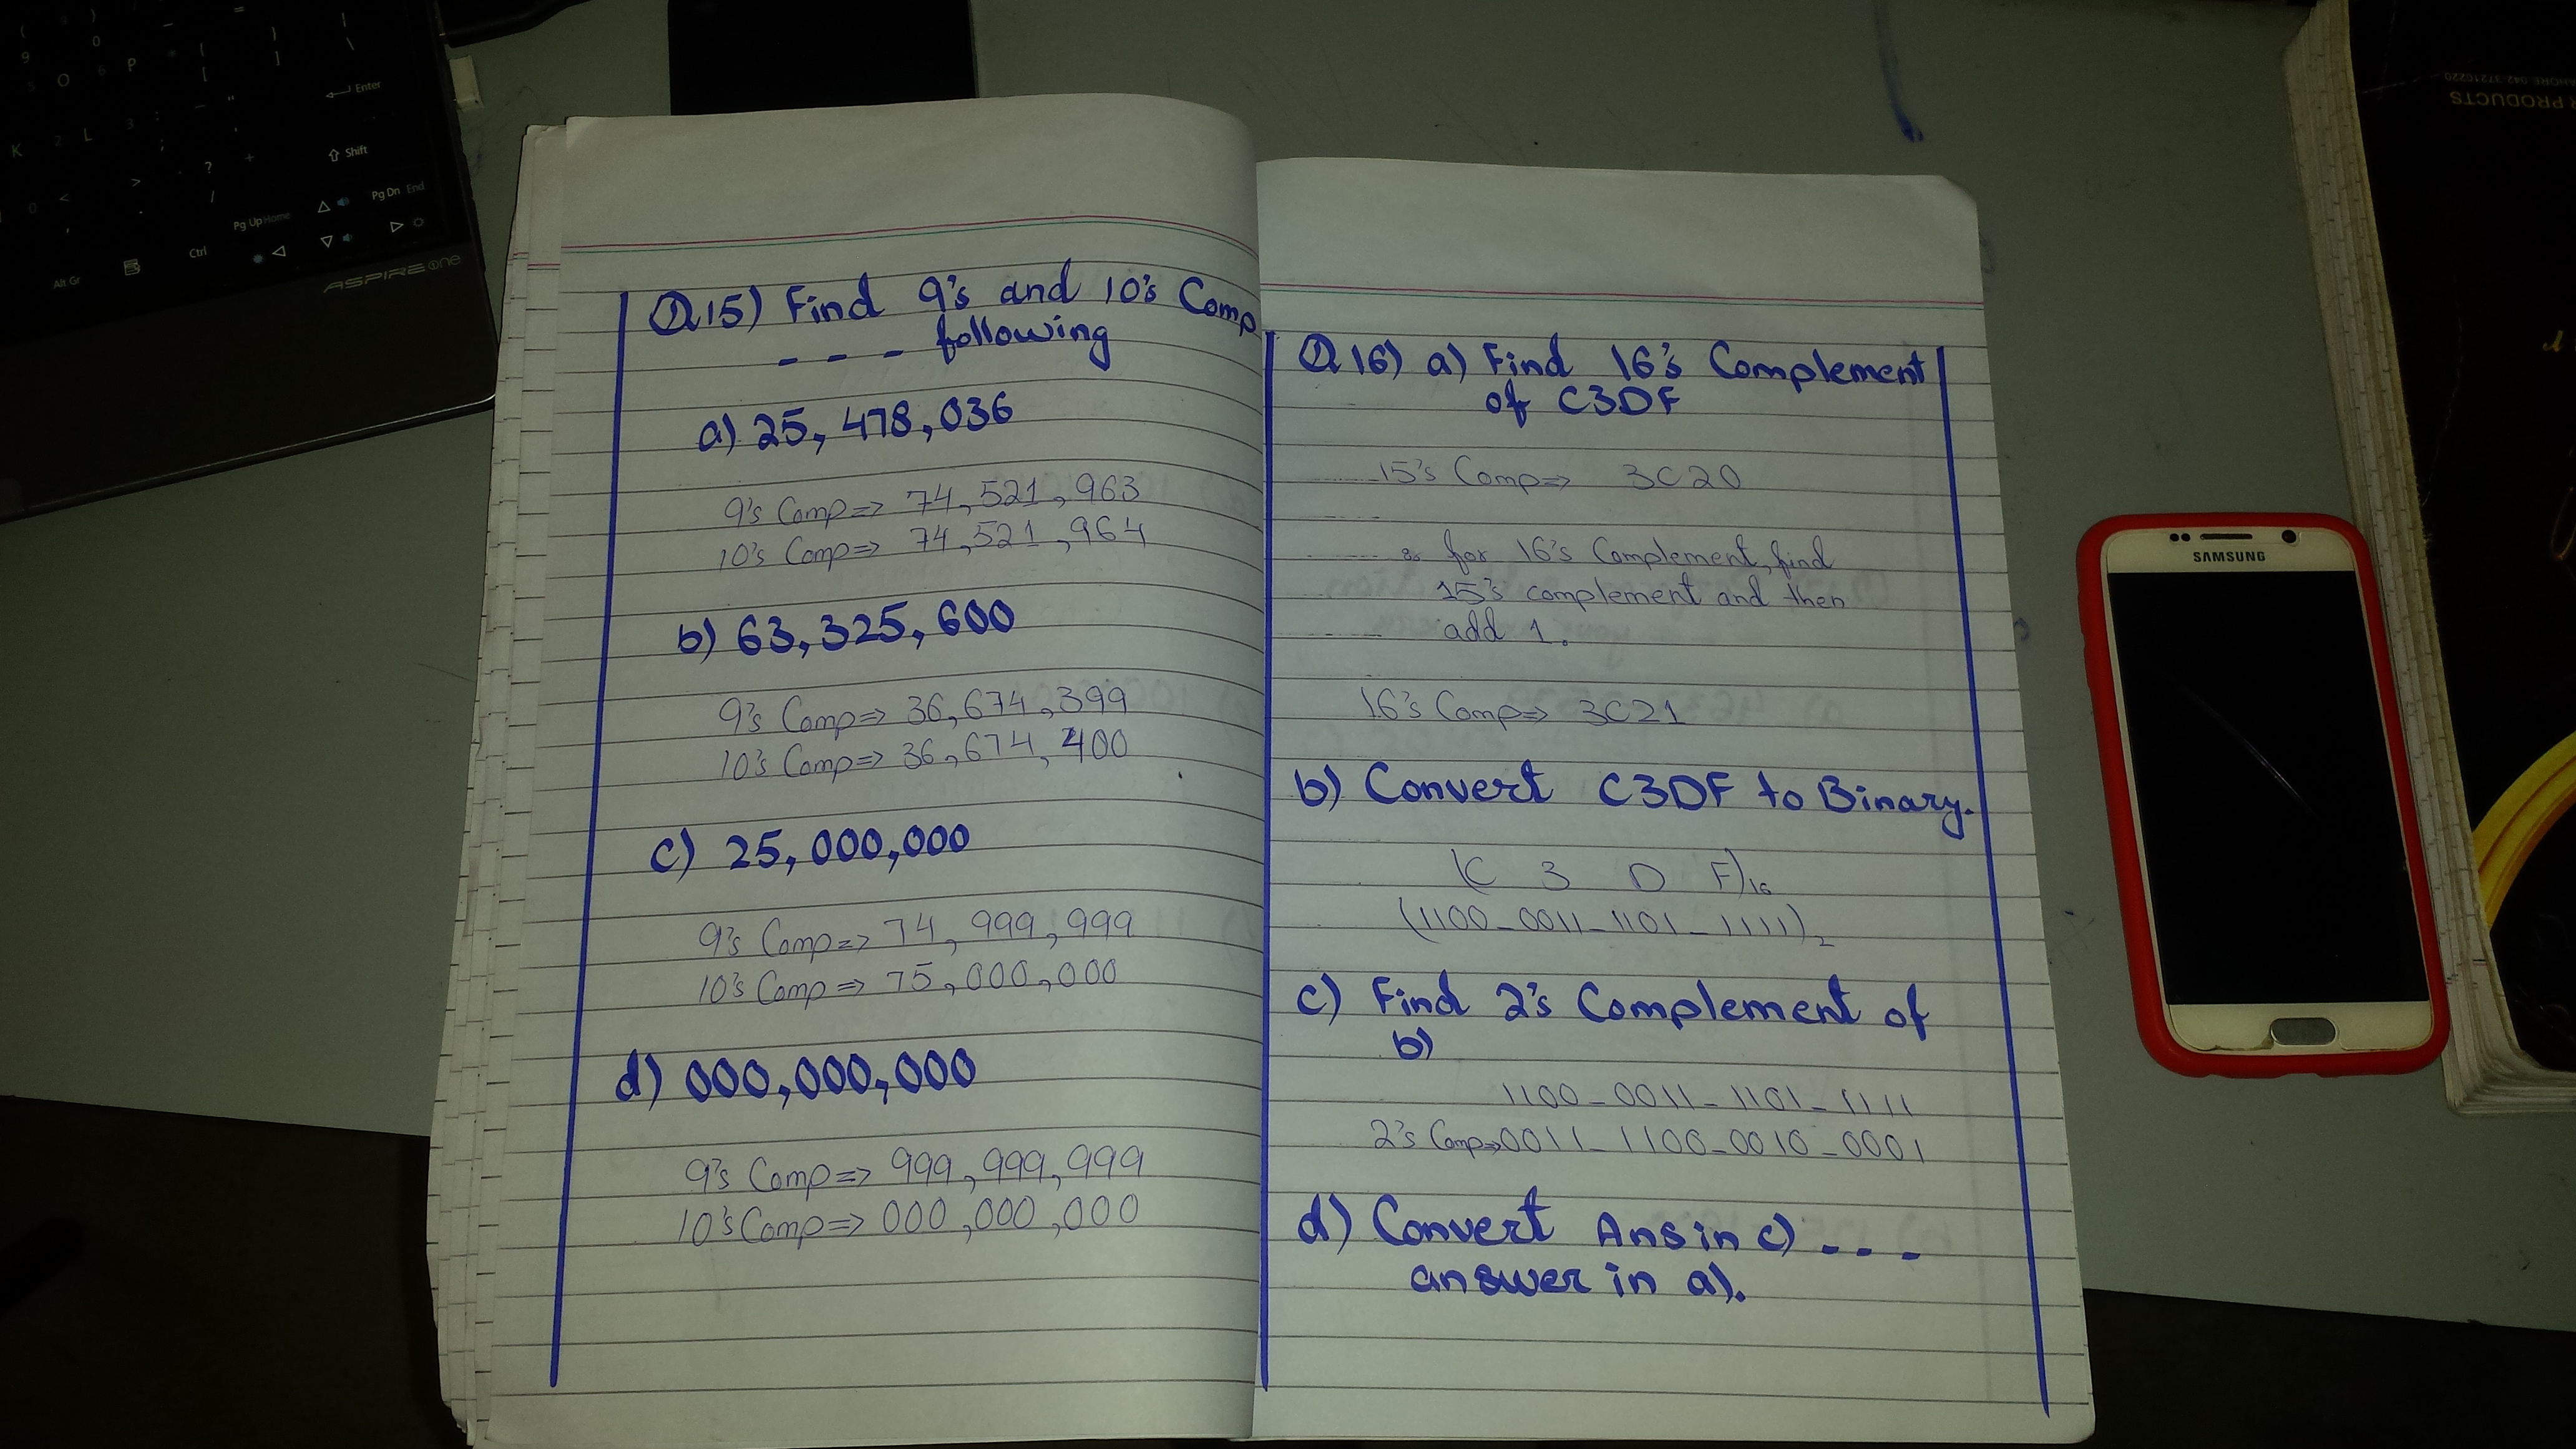 Q.15) Find 9's and 10's Comp
- - - - following
a) 25,478,036
9's Comp=> 74,521,963
10's Comp=> 74,521,964
b) 63,325,600
9's Comp=> 36,674,399
10's Comp=> 36,674,400
c) 25,000,000
9's Comp=> 74,999,999
10's Comp=> 75,000,000
d) 000,000,000
9's Comp=> 999,999,999
10's Comp=> 000,000,000
Q.16) a) Find 16's Complement
of C3DF
15's Comp=> 3C20
for 16's Complement, find
15's complement and then
add 1.
16's Comp=> 3C21
b) Convert C3DF to Binary.
(C 3 D F)16
(1100-0011-1101-1111)2
c) Find 2's Complement of
b)
1100-0011-1101-1111
2's Comp=>0011-1100-0010-0001
d) Convert Ans in c) - - - -
answer in a).
SAMSUNG
ASPIRE one
Alt Gr
Ctrl
Pg Up Home
Pg Dn End
Shift
Enter
PRODUCTS